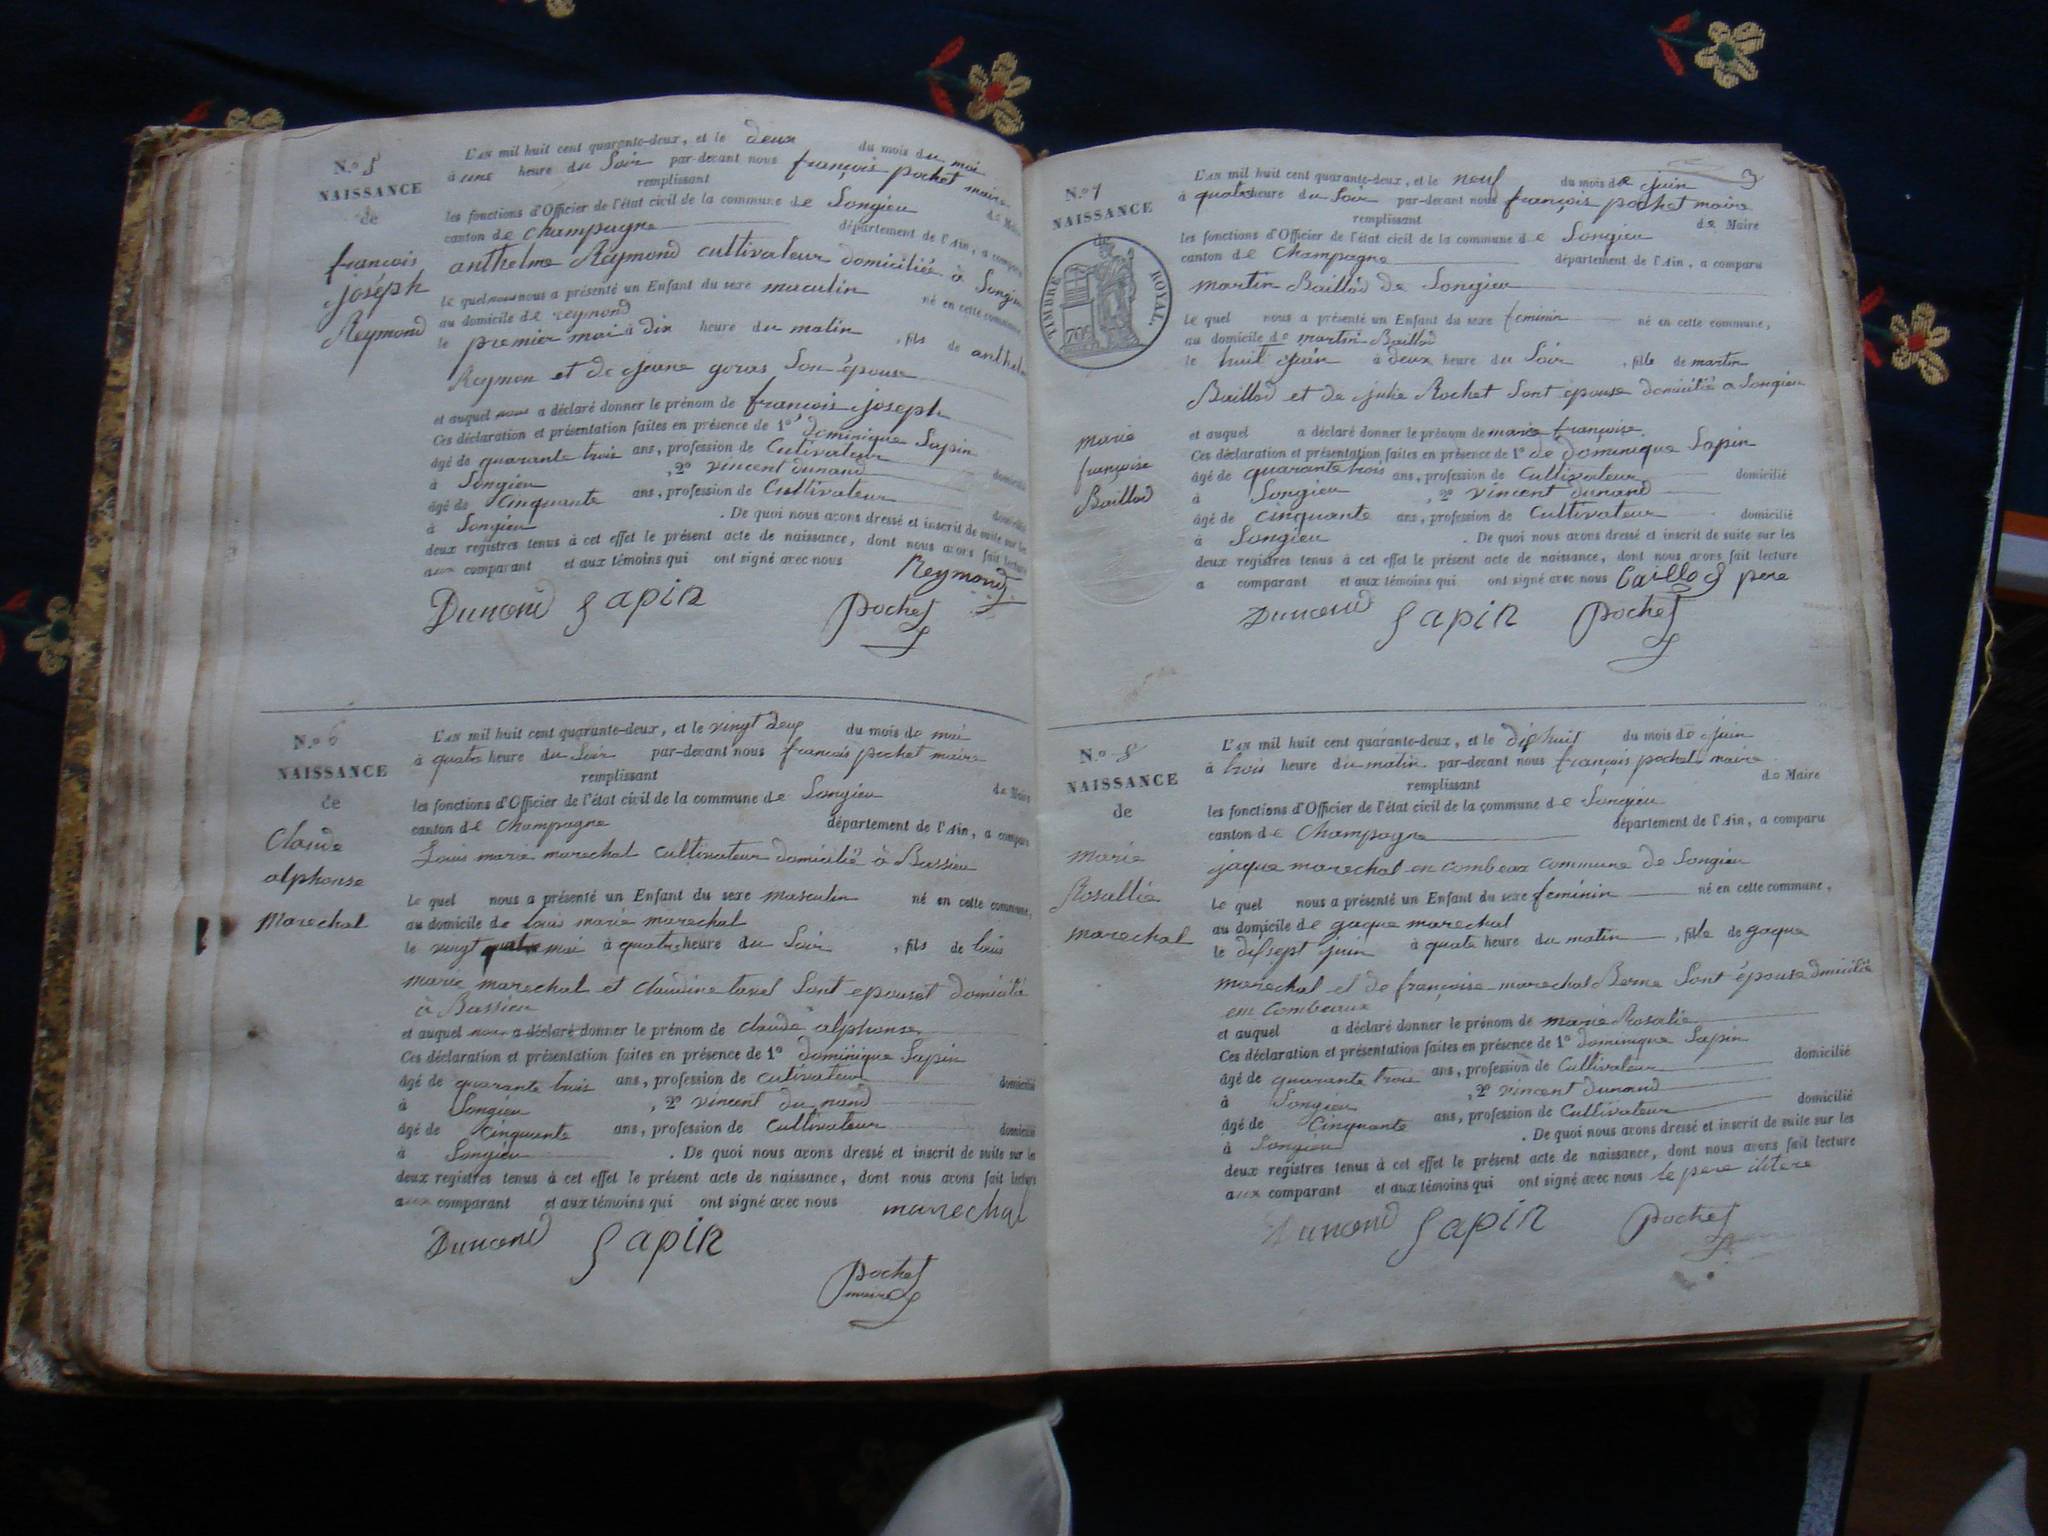 N.o 5
NAISSANCE
de
françois
joséph
Reymond
L'AN mil huit cent quarante-deux, et le deux du mois du mai
à une heure du Soir par-devant nous françois pochet maire
remplissant
les fonctions d'Officier de l'état civil de la commune de Songieu de Maire
canton de Champagne département de l'Ain, a comparu
anthelme Reymond cultivateur domiciliée à Songieu
le quel nous a présenté un Enfant du sexe maculin né en cette commune,
au domicile de reymond
le premier mai à dix heure du matin , fils de anthelme
Reymon et de jeane goras Son épouse
et auquel nous a déclaré donner le prénom de françois joseph
Ces déclaration et présentation faites en présence de 1º dominique Sapin
âgé de quarante trois ans, profession de Cultivateur domicilié
à Songieu , 2º vincent dunand
âgé de Cinquante ans, profession de Cultivateur domicilié
à Songieu . De quoi nous avons dressé et inscrit de suite sur les
deux registres tenus à cet effet le présent acte de naissance, dont nous avons fait lecture
aux comparant et aux témoins qui ont signé avec nous Reymond
Dunand Sapin Pochet
N.o 6
NAISSANCE
de
Claude
alphonse
Marechal
L'AN mil huit cent quarante-deux, et le vingt deux du mois de mai
à quatre heure du Soir par-devant nous françois pochet maire
remplissant
les fonctions d'Officier de l'état civil de la commune de Songieu de Maire
canton de Champagne département de l'Ain, a comparu
Louis marie marechal cultivateur domicilié à Bassieu
le quel nous a présenté un Enfant du sexe masculin né en cette commune,
au domicile de louis marie marechal
le vingt mai à quatre heure du Soir , fils de louis
marie marechal et claudine tavel Sont epouset domicilié
à Bassieu
et auquel nous a déclaré donner le prénom de claude alphonse
Ces déclaration et présentation faites en présence de 1º dominique Sapin
âgé de quarante trois ans, profession de cutivateur domicilié
à Songieu , 2º vincent du nand
âgé de Cinquante ans, profession de Cultivateur domicilié
à Songieu . De quoi nous avons dressé et inscrit de suite sur les
deux registres tenus à cet effet le présent acte de naissance, dont nous avons fait lecture
aux comparant et aux témoins qui ont signé avec nous marechal
Dunand Sapin
Pochet
maire
3
N.o 7
NAISSANCE
de
TIMBRE ROYAL.
marie
françoise
Baillod
L'AN mil huit cent quarante-deux, et le neuf du mois de juin
à quatre heure du Soir par-devant nous françois pochet maire
remplissant de Maire
les fonctions d'Officier de l'état civil de la commune de Songieu
canton de Champagne département de l'Ain, a comparu
martin Baillod de Songieu
Le quel nous a présenté un Enfant du sexe feminin né en cette commune,
au domicile de martin Baillod
le huit juin à deux heure du Soir , fille de martin
Baillod et de julie Rochet Sont épouse domicilié a Songieu
et auquel a déclaré donner le prénom de marie françoise
Ces déclaration et présentation faites en présence de 1º de dominique Sapin
âgé de quarante trois ans, profession de Cultivateur domicilié
à Songieu , 2º vincent dunand
âgé de cinquante ans, profession de Cultivateur domicilié
à Songieu . De quoi nous avons dressé et inscrit de suite sur les
deux registres tenus à cet effet le présent acte de naissance, dont nous avons fait lecture
a comparant et aux témoins qui ont signé avec nous Baillod pere
Dunand Sapin Pochet
N.o 8
NAISSANCE
de
marie
Rosallie
marechal
L'AN mil huit cent quarante-deux, et le dixhuit du mois de juin
à trois heure du matin par-devant nous françois pochet maire
remplissant de Maire
les fonctions d'Officier de l'état civil de la commune de Songieu
canton de Champagne département de l'Ain, a comparu
jaque marechal en combeax commune de Songieu
Le quel nous a présenté un Enfant du sexe feminin né en cette commune,
au domicile de gaque marechal
le disept juin à quate heure du matin , fille de gaque
marechal et de françoise marechal Berne Sont épouse domicilié
em combeaux
et auquel a déclaré donner le prénom de marie Rosalie
Ces déclaration et présentation faites en présence de 1º dominique Sapin
âgé de quarante trois ans, profession de Cultivateur domicilié
à Songieu , 2º vincent dunand
âgé de Cinquante ans, profession de Cultivateur domicilié
à Songieu . De quoi nous avons dressé et inscrit de suite sur les
deux registres tenus à cet effet le présent acte de naissance, dont nous avons fait lecture
aux comparant et aux témoins qui ont signé avec nous le pere ilitere
Dunand Sapin Pochet